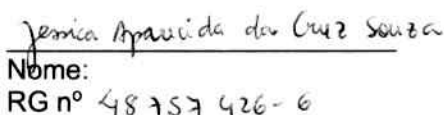 Jessica Aparecida da Cruz Souza
Nome:
RG nº 48 757 426-6